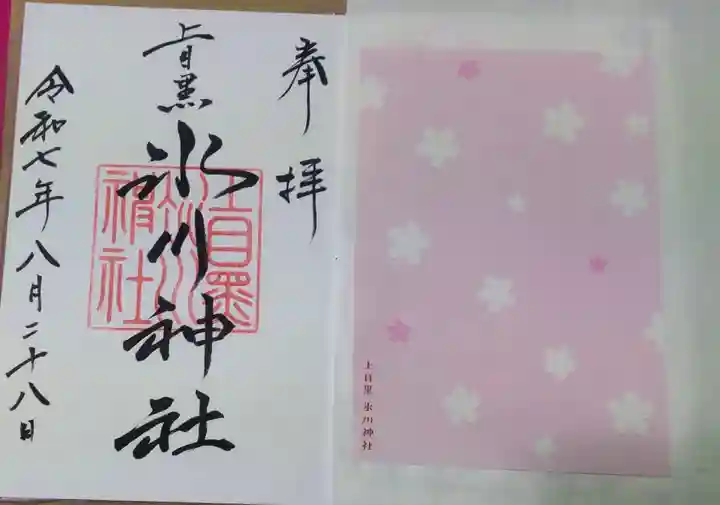 奉拝
上目黒
氷川神社
令和七年八月二十八日
上目黒氷川神社
上目黒 氷川神社